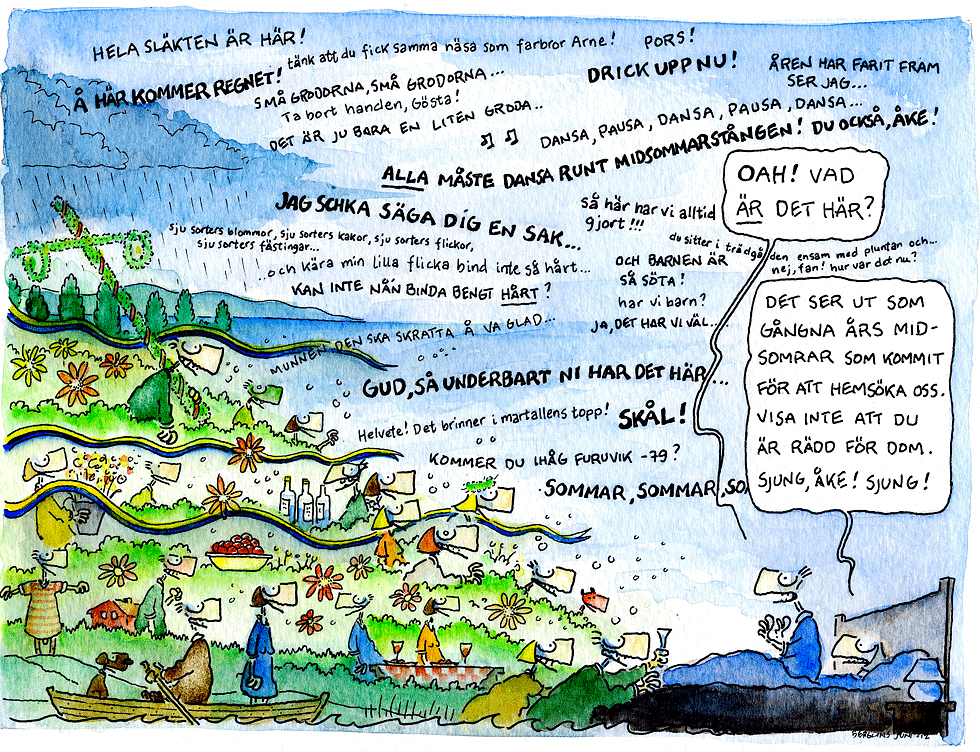 HELA SLÄKTEN ÄR HÄR!
tänk att du fick samma näsa som farbror Arne!
PORS!
Å HÄR KOMMER REGNET!
SMÅ GRODORNA, SMÅ GRODORNA...
Ta bort handen, Gösta!
DET ÄR JU BARA EN LITEN GRODA..
DRICK UPP NU!
ÅREN HAR FARIT FRAM
SER JAG...
DANSA, PAUSA, DANSA, PAUSA, DANSA...
ALLA MÅSTE DANSA RUNT MIDSOMMARSTÅNGEN! DU OCKSÅ, ÅKE!
JAG SCHKA SÄGA DIG EN SAK...
så här har vi alltid
gjort!!!
sju sorters blommor, sju sorters kakor, sju sorters flickor,
sju sorters fästingar...
du sitter i trädgården ensam med pluntan och...
nej, fan! hur var det nu?
...och kära min lilla flicka bind inte så hårt...
KAN INTE NÅN BINDA BENGT HÅRT?
OCH BARNEN ÄR
SÅ SÖTA!
har vi barn?
JA, DET HAR VI VÄL...
MUNNEN DEN SKA SKRATTA Å VA GLAD...
GUD, SÅ UNDERBART NI HAR DET HÄR...
Helvete! Det brinner i martallens topp!
SKÅL!
KOMMER DU IHÅG FURUVIK -79?
SOMMAR, SOMMAR, SO
OAH! VAD
ÄR DET HÄR?
DET SER UT SOM
GÅNGNA ÅRS MID-
SOMRAR SOM KOMMIT
FÖR ATT HEMSÖKA OSS.
VISA INTE ATT DU
ÄR RÄDD FÖR DOM.
SJUNG, ÅKE! SJUNG!
BERGLINS JUNI -12